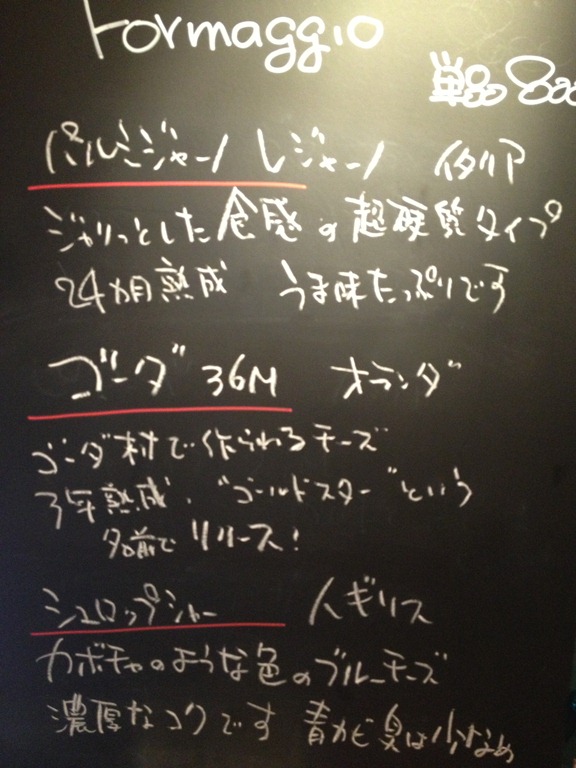 Formaggio
単品 800
パルミジャーノ レジャーノ イタリア
ジャリっとした食感の超硬質タイプ
24カ月熟成 うま味たっぷりです
ゴーダ 36M オランダ
ゴーダ村で作られるチーズ
3年熟成、"ゴールドスター"という
名前でリリース!
シュロップシャー イギリス
カボチャのような色のブルーチーズ
濃厚なコクです 青カビ臭は少なめ